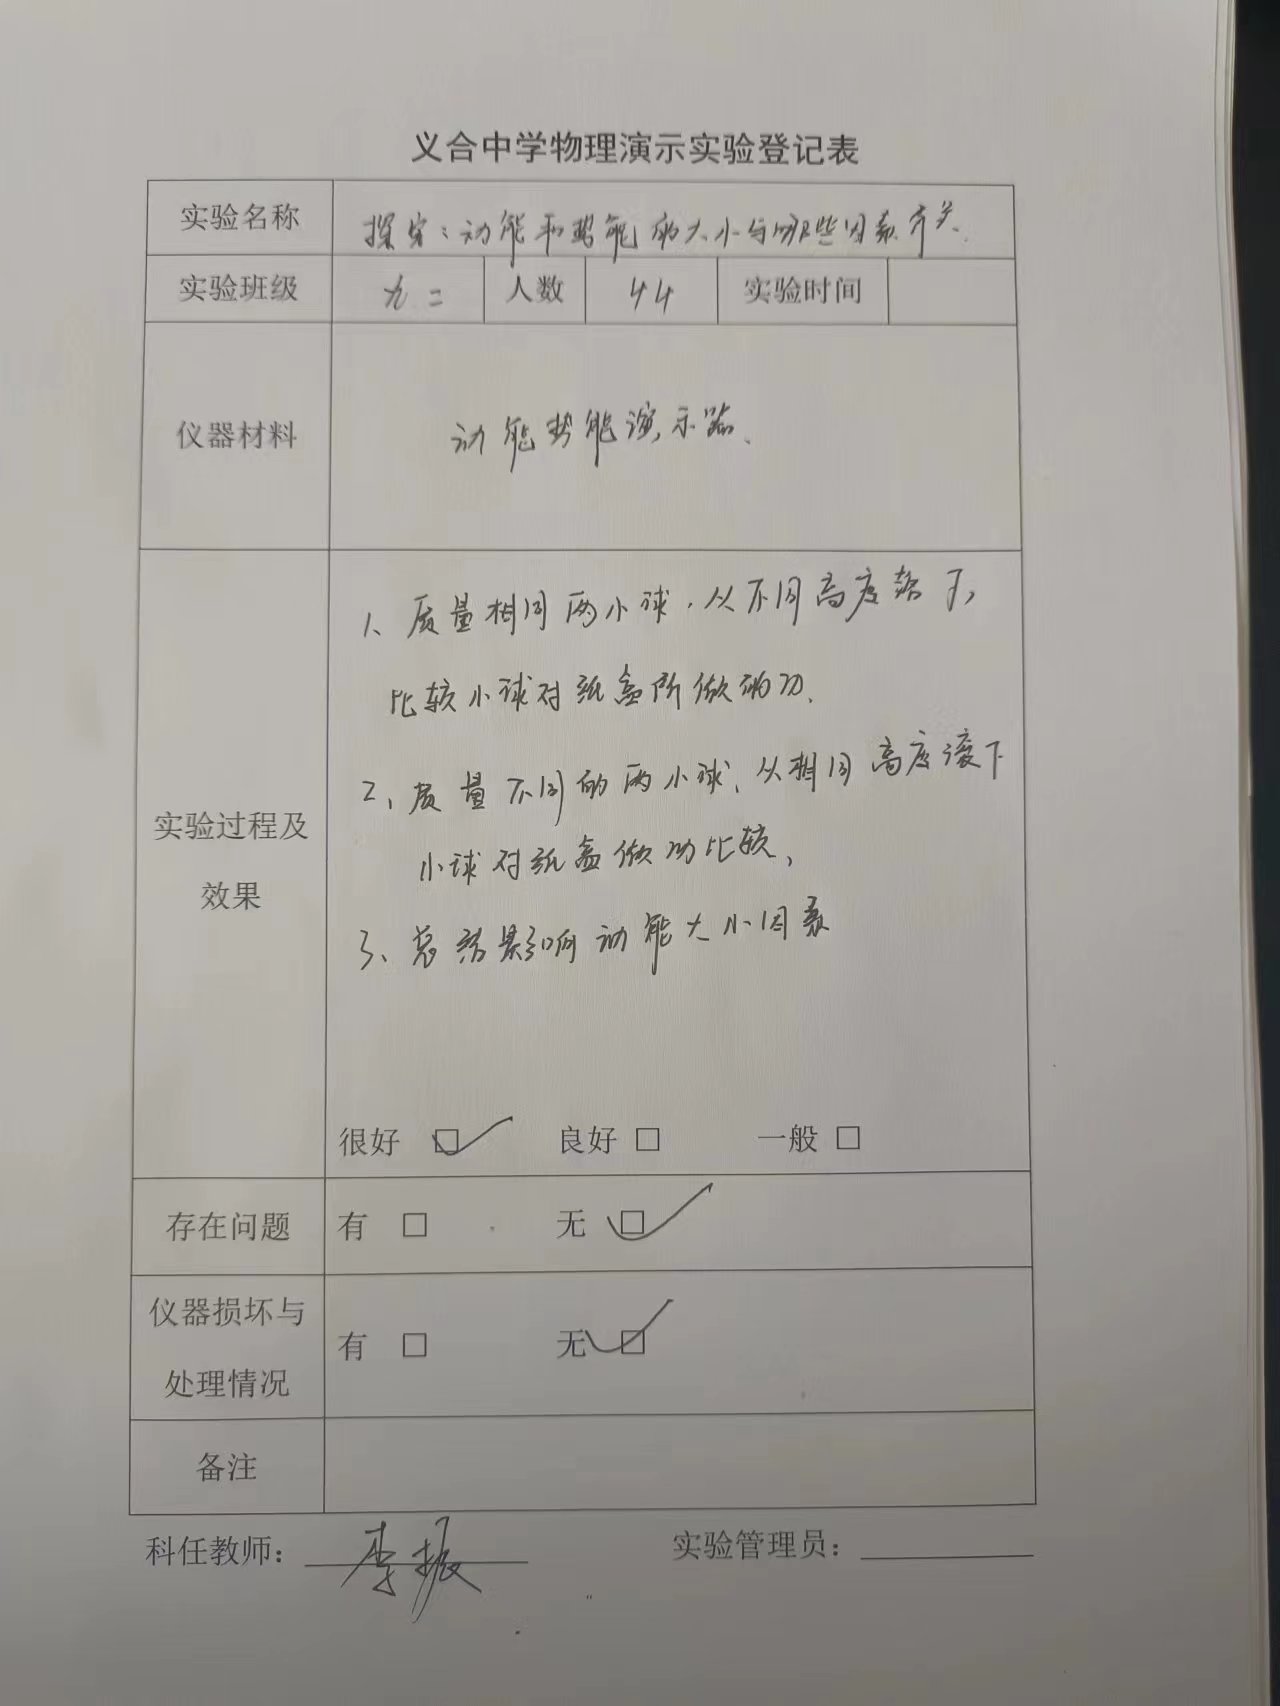 义合中学物理演示实验登记表
实验名称 探究：动能和势能的大小与哪些因素有关.
实验班级 九二 人数 44 实验时间
仪器材料 动能势能演示器.
1、质量相同两小球，从不同高度落下，
比较小球对纸盒所做的功.
2、质量不同的两小球、从相同高度滚下
实验过程及
小球对纸盒做功比较，
效果
3、总结影响动能大小因素
很好 ☑ 良好 □ 一般 □
存在问题 有 □ 无 ☑
仪器损坏与
有 □ 无 ☑
处理情况
备注
科任教师：李振 实验管理员：